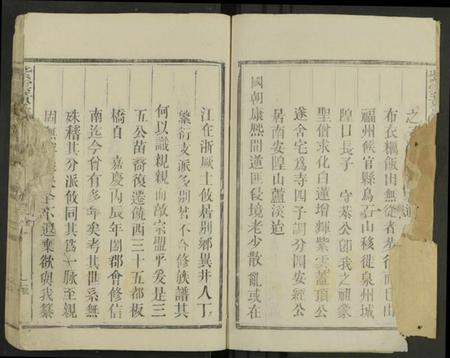 布衣糲飯出無徒者
福州候官縣烏石山移徙泉州城
隍口長子 守恭公卽我之祖蒙
聖僧求化白蓮增輝紫雲蓋頂公
遂舍宅爲寺四子調分四安經公
居南安隍山蘆溪迨
國朝康熙間遭匪侵境老少散亂或在
江在浙厥土攸居別鄉異井人丁
繁衍支派多別若不合修族譜其
何以識親親而敵宗盟乎爰是三
五公苗裔復遷饒西三十五都板
橋自 嘉慶丙辰年闔郡會修信
南迄今曾有多年矣考其世系無
殊稽其分派攸同其爲一脈至親
固無
欲與我纂